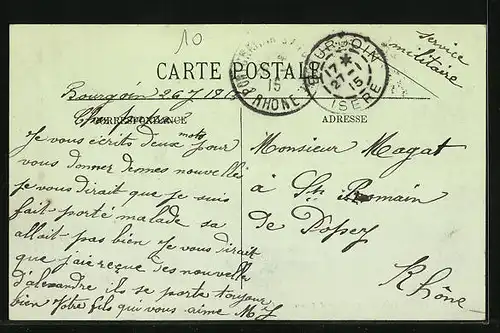 10
service
militaire
BOURGOIN
17 * 
27-1
15
ISERE
15
RHONE
CARTE POSTALE
Bourgoin 26 J 1915
CORRESPONDANCE
ADRESSE
mots
Je vous écrits deux pour
vous donner demes nouvelle
je vous dirait que je suis
fait porté malade sa
allait pas bien Je vous dirait
que j'aie reçue des nouvelle
d'alexandre ils se porte toujour
bien Votre fils qui vous aime M J
Monsieur Magat
à St Romain
de Popey
Rhône